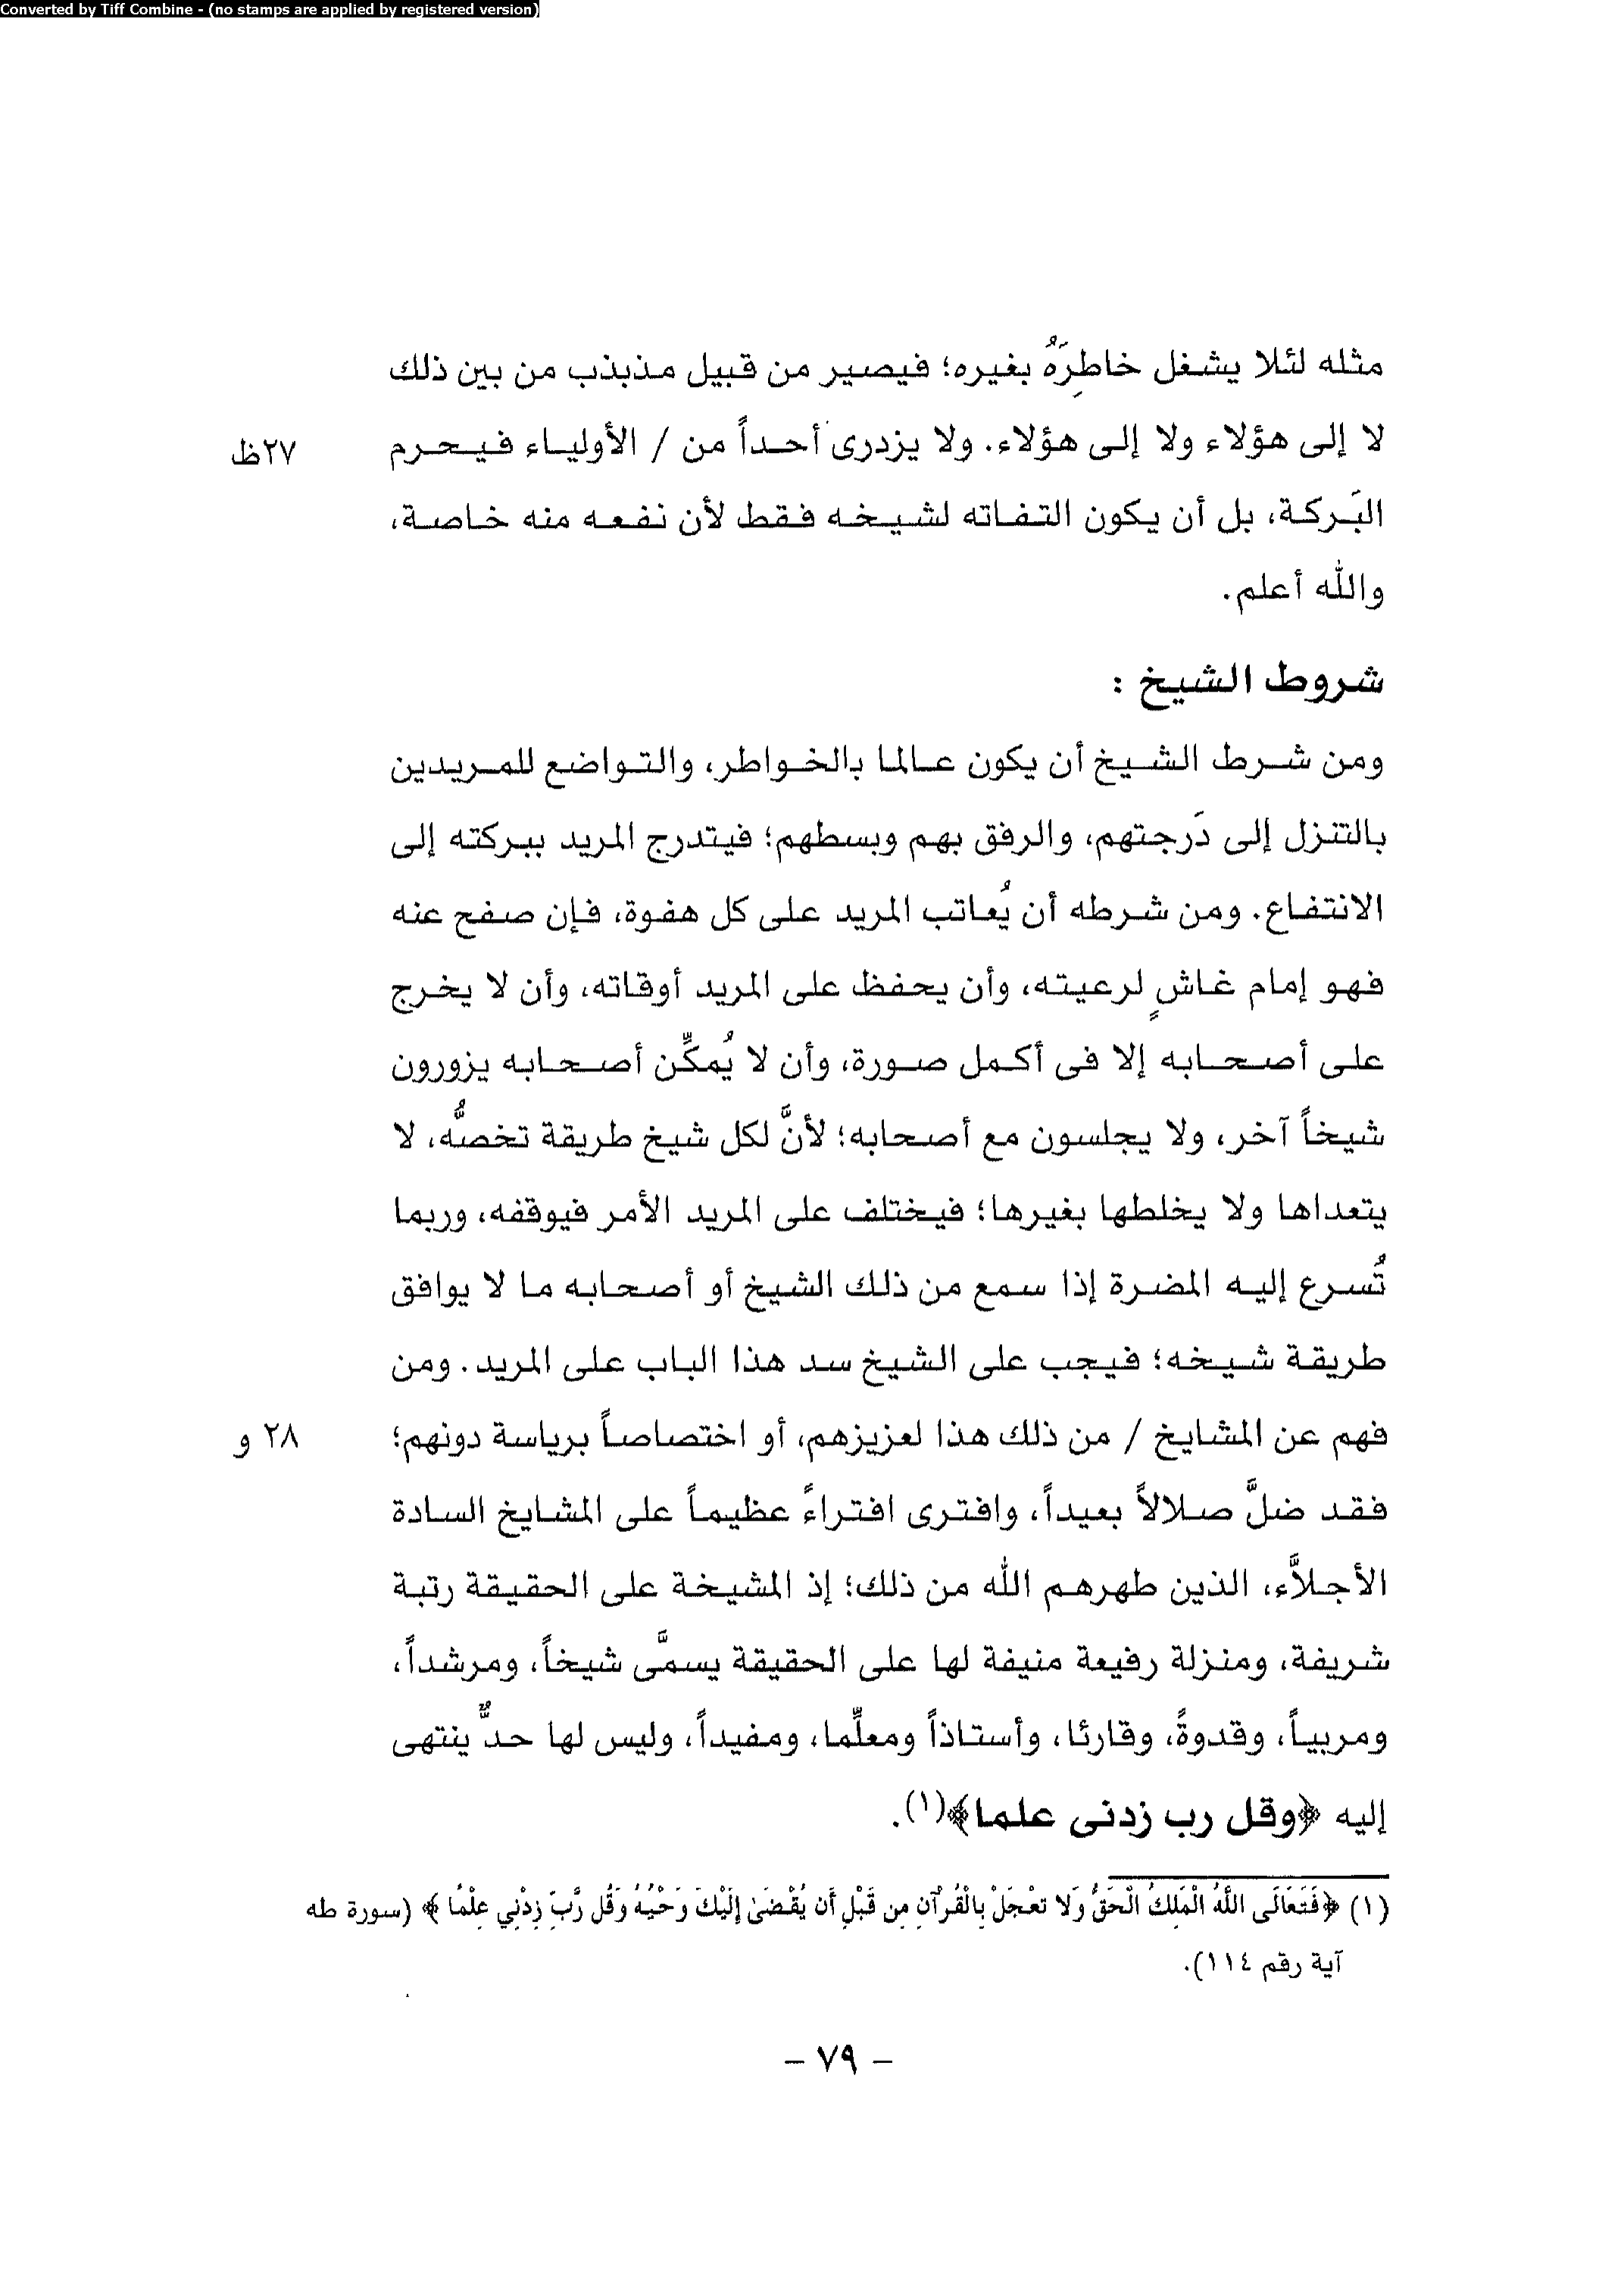 Converted by Tiff Combine - (no stamps are applied by registered version)
مثله لئلا يشغل خاطِرَهُ بغيره؛ فيصير من قبيل مذبذب من بين ذلك
لا إلى هؤلاء ولا إلى هؤلاء. ولا يزدرى أحداً من / الأولياء فيحرم ٢٧ظ
البَركة، بل أن يكون التفاته لشيخه فقط لأن نفعه منه خاصة،
والله أعلم.
شروط الشيخ :
ومن شرط الشيخ أن يكون عالما بالخواطر، والتواضع للمريدين
بالتنزل إلى دَرجتهم، والرفق بهم وبسطهم؛ فيتدرج المريد ببركته إلى
الانتفاع. ومن شرطه أن يُعاتب المريد على كل هفوة، فإن صفح عنه
فهو إمام غاشٍ لرعيته، وأن يحفظ على المريد أوقاته، وأن لا يخرج
على أصحابه إلا فى أكمل صورة، وأن لا يُمكِّن أصحابه يزورون
شيخاً آخر، ولا يجلسون مع أصحابه؛ لأنَّ لكل شيخ طريقة تخصُّه، لا
يتعداها ولا يخلطها بغيرها؛ فيختلف على المريد الأمر فيوقفه، وربما
تُسرع إليه المضرة إذا سمع من ذلك الشيخ أو أصحابه ما لا يوافق
طريقة شيخه؛ فيجب على الشيخ سد هذا الباب على المريد. ومن
فهم عن المشايخ / من ذلك هذا لعزيزهم، أو اختصاصاً برياسة دونهم؛ ٢٨ و
فقد ضلَّ صلالاً بعيداً، وافترى افتراءً عظيماً على المشايخ السادة
الأجلاَّء، الذين طهرهم الله من ذلك؛ إذ المشيخة على الحقيقة رتبة
شريفة، ومنزلة رفيعة منيفة لها على الحقيقة يسمَّى شيخاً، ومرشداً،
ومربياً، وقدوةً، وقارئا، وأستاذاً ومعلِّما، ومفيداً، وليس لها حدٌّ ينتهى
إليه ﴿وقل رب زدنى علما﴾(١).
(١) ﴿فَتَعَالَى اللَّهُ الْمَلِكُ الْحَقُّ وَلا تَعْجَلْ بِالْقُرْآنِ مِن قَبْلِ أَن يُقْضَىٰ إِلَيْكَ وَحْيُهُ وَقُل رَّبِّ زِدْنِي عِلْمًا ﴾ (سورة طه
آية رقم ١١٤).
- ٧٩ -